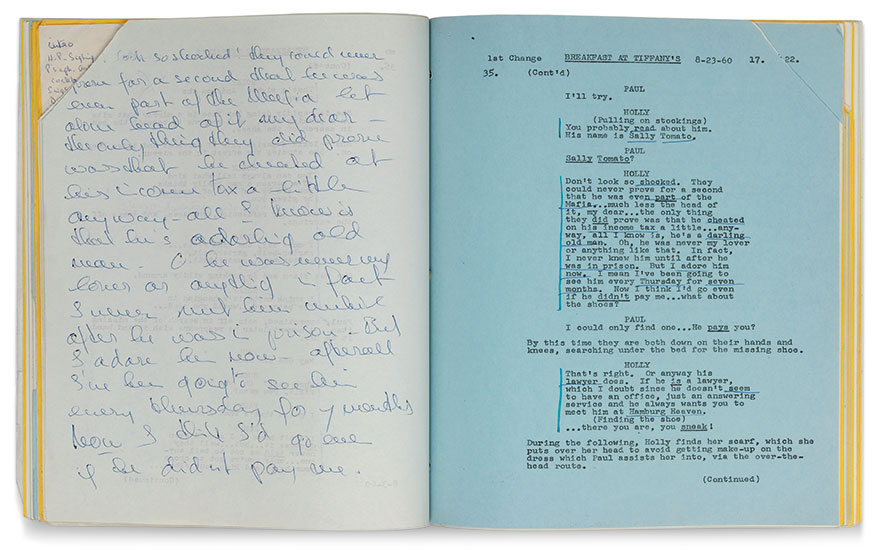 intro
Look so shocked! they could never
prove for a second that he was
even part of the Mafia let
alone head of it my dear –
the only thing they did prove
was that he cheated at
his income tax a – little
anyway – all I know is
that he's a darling old
man. O he was never my
lover or anything in fact
I never met him until
after he was in prison. But
I adore him now – after all
I've been going to see him
every thursday for 7 months
now I think I'd go even
if he didn't pay me.
1st Change BREAKFAST AT TIFFANY'S 8-23-60 17. 22.
35. (Cont'd)
PAUL
I'll try.
HOLLY
(Pulling on stockings)
You probably read about him.
His name is Sally Tomato.
PAUL
Sally Tomato?
HOLLY
Don't look so shocked. They
could never prove for a second
that he was even part of the
Mafia...much less the head of
it, my dear...the only thing
they did prove was that he cheated
on his income tax a little...any-
way, all I know is, he's a darling
old man. Oh, he was never my lover
or anything like that. In fact,
I never knew him until after he
was in prison. But I adore him
now. I mean I've been going to
see him every Thursday for seven
months. Now I think I'd go even
if he didn't pay me...what about
the shoes?
PAUL
I could only find one...He pays you?
By this time they are both down on their hands and
knees, searching under the bed for the missing shoe.
HOLLY
That's right. Or anyway his
lawyer does. If he is a lawyer,
which I doubt since he doesn't seem
to have an office, just an answering
service and he always wants you to
meet him at Hamburg Heaven.
(Finding the shoe)
...there you are, you sneak!
During the following, Holly finds her scarf, which she
puts over her head to avoid getting make-up on the
dress which Paul assists her into, via the over-the-
head route.
(Continued)